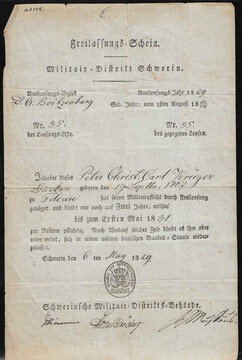 Freilassungs-Schein.
Militair-Distrikt Schwerin.
Aushebungs-Bezirk
Aushebungs-Jahr 1829
D. A. Boitzenburg
Geb. Jahr: vom 1sten August
Nr. 35.
Nr. 35.
der Loosungs-Liste.
des gezogenen Looses.
Inhaber dieses Peter Christ. Carl Krüger
geboren den 19 Septbr. 1807
zu hat seiner Militairpflicht durch Freiloosung
genüget und bleibt nur noch auf Zwei Jahre, mithin
bis zum Ersten Mai 1831
zur Reserve pflichtig. Nach Verlauf solcher Zeit bleibt es ihm aber
unverwehrt, sich in einem andern deutschen Bundes-Staate nieder-
zulassen.
Schwerin den 6 ten May 1829
Schwerinsche Militair-Distrikts-Behörde.